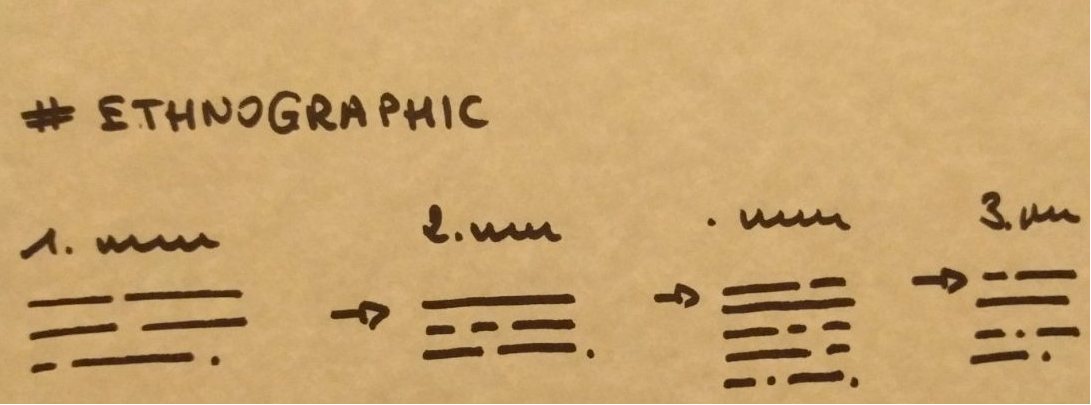 # ETHNOGRAPHIC
1. 2. . 3.